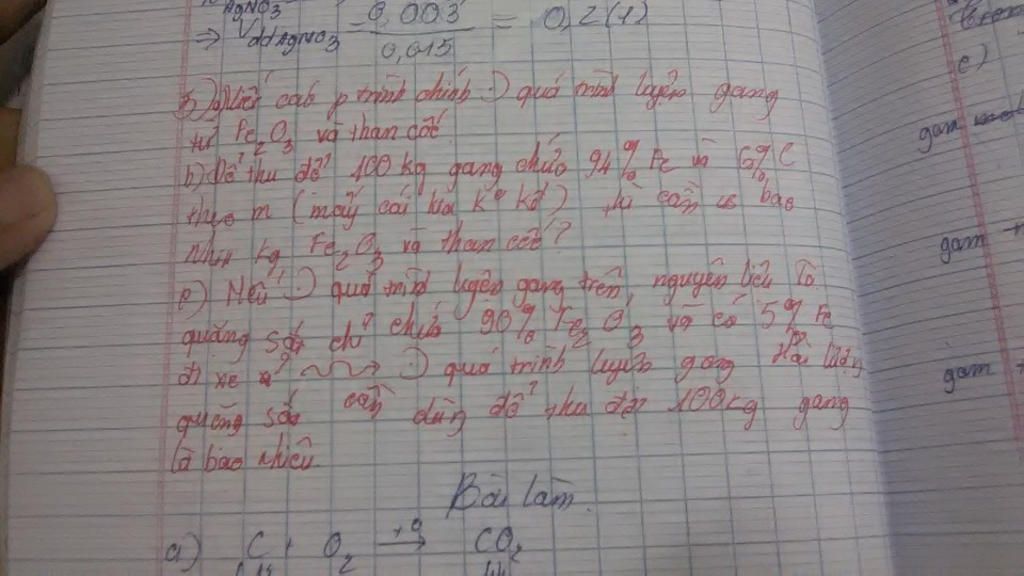 AgNO3
⇒ Vdd AgNO3 = 0,003 / 0,015 = 0,2 (l)
5) a) Viết các p trình chính quá trình luyện gang
từ Fe2O3 và than cốc
b) Để thu đc 100 kg gang chứa 94% Fe và 6% C
theo m (mấy cái kia k kể) thì cần bao
nhiu kg Fe2O3 và than cốc?
c) Nếu quá trình luyện gang trên, nguyên liệu là
quặng sắt chỉ chứa 90% Fe2O3 và có 5% Fe
quá trình luyện gang
quặng sắt cần dùng để thu đc 100kg gang
là bao nhiêu.
Bài làm.
a) C + O2 → CO2
44
c)
gam
gam
gam